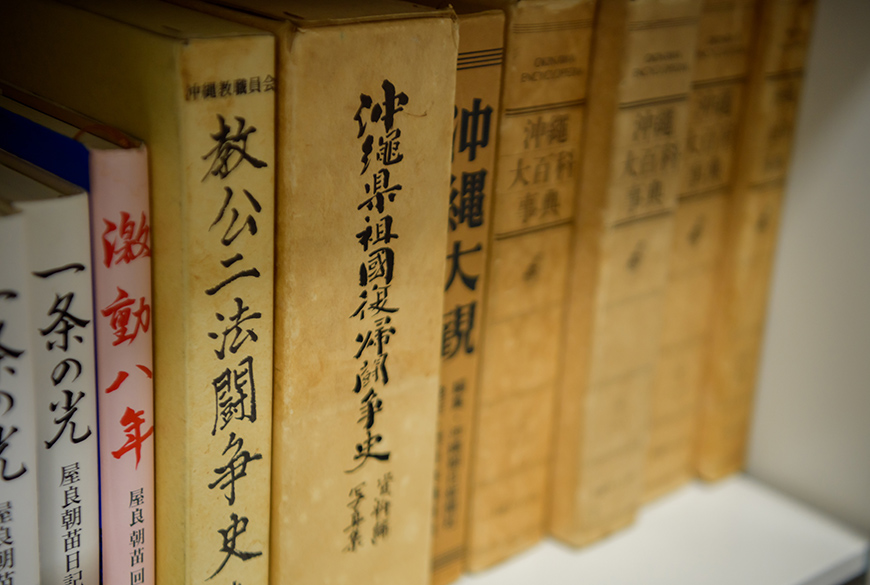 一条の光
屋良朝苗
一条の光
屋良朝苗日記
激動八年
屋良朝苗回
沖縄教職員会
教公二法闘争史
沖繩県祖國復帰闘争史
資料編
写真集
沖縄大観
沖縄
大百科
事典
沖縄
大百科
事典
沖縄
大百科
事典